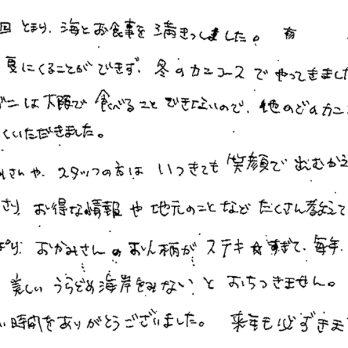 回 とまり、海とお食事を満きつしました。 有
夏にくることができず、冬のカニコースでやってきました
ガニは大阪で食べることできないので、他のどのカニ
くいただきました。
さんや、スタッフの方は いつきても 笑顔で 出むかえ
さり、お得な情報や地元のことなど たくさん教えて
ぱり、おかみさんのお人柄がステキすぎて、毎年
美しい うらどめ海岸をみないと おちつきません。
い時間をありがとうございました。 来年も必ずきま